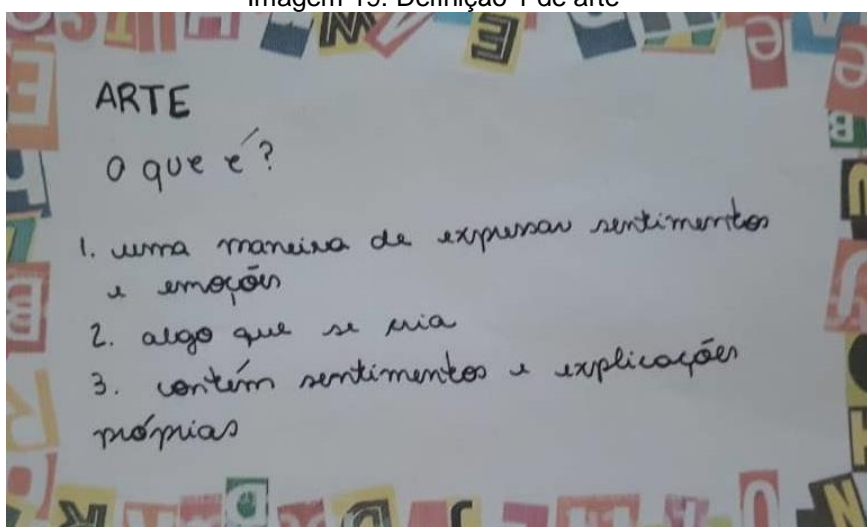 Imagem 19: Definição 1 de arte
ARTE
O que é?
1. uma maneira de expressar sentimentos
e emoções
2. algo que se cria
3. contém sentimentos e explicações
próprias